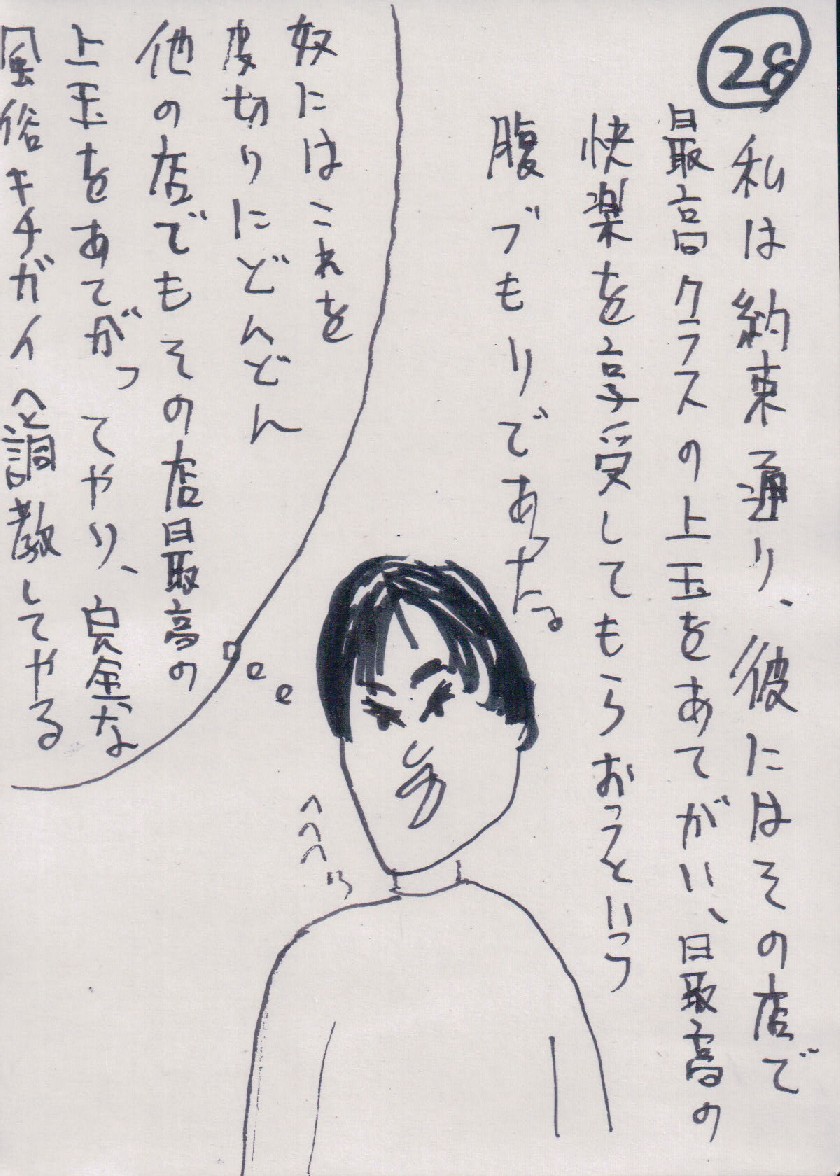 28
私は約束通り、彼にはその店で
最高クラスの上玉をあてがい、最高の
快楽を享受してもらおうという
腹づもりであった。
奴にはこれを
皮切りにどんどん
他の店でもその店最高の
上玉をあてがってやり、完全な
風俗キチガイへと調教してやる
へへへっ